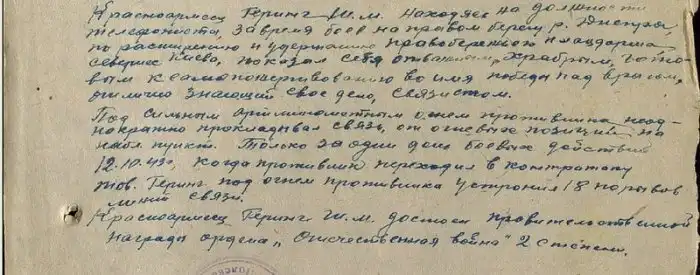 Красноармеец Геринг Ш.М. находясь на должности
телефониста, за время боев на правом берегу р. Днепра,
по расширению и удержанию правобережного плацдарма
севернее Киева, показал себя отважным, храбрым, гото-
вым к самопожертвованию во имя победы над врагом,
отлично знающий свое дело, связистом.
Под сильным арт минометным огнем противника неод-
нократно прокладывал связь, от огневых позиций на
набл. пункт. Только за один день боевых действий
12.10.43г, когда противник переходил в контратаку
тов. Геринг под огнем противника устронил 18 порывов
линий связи.
Красноармеец Геринг Ш.М. достоен правительственной
награды ордена „Отечественная война" 2 степени.